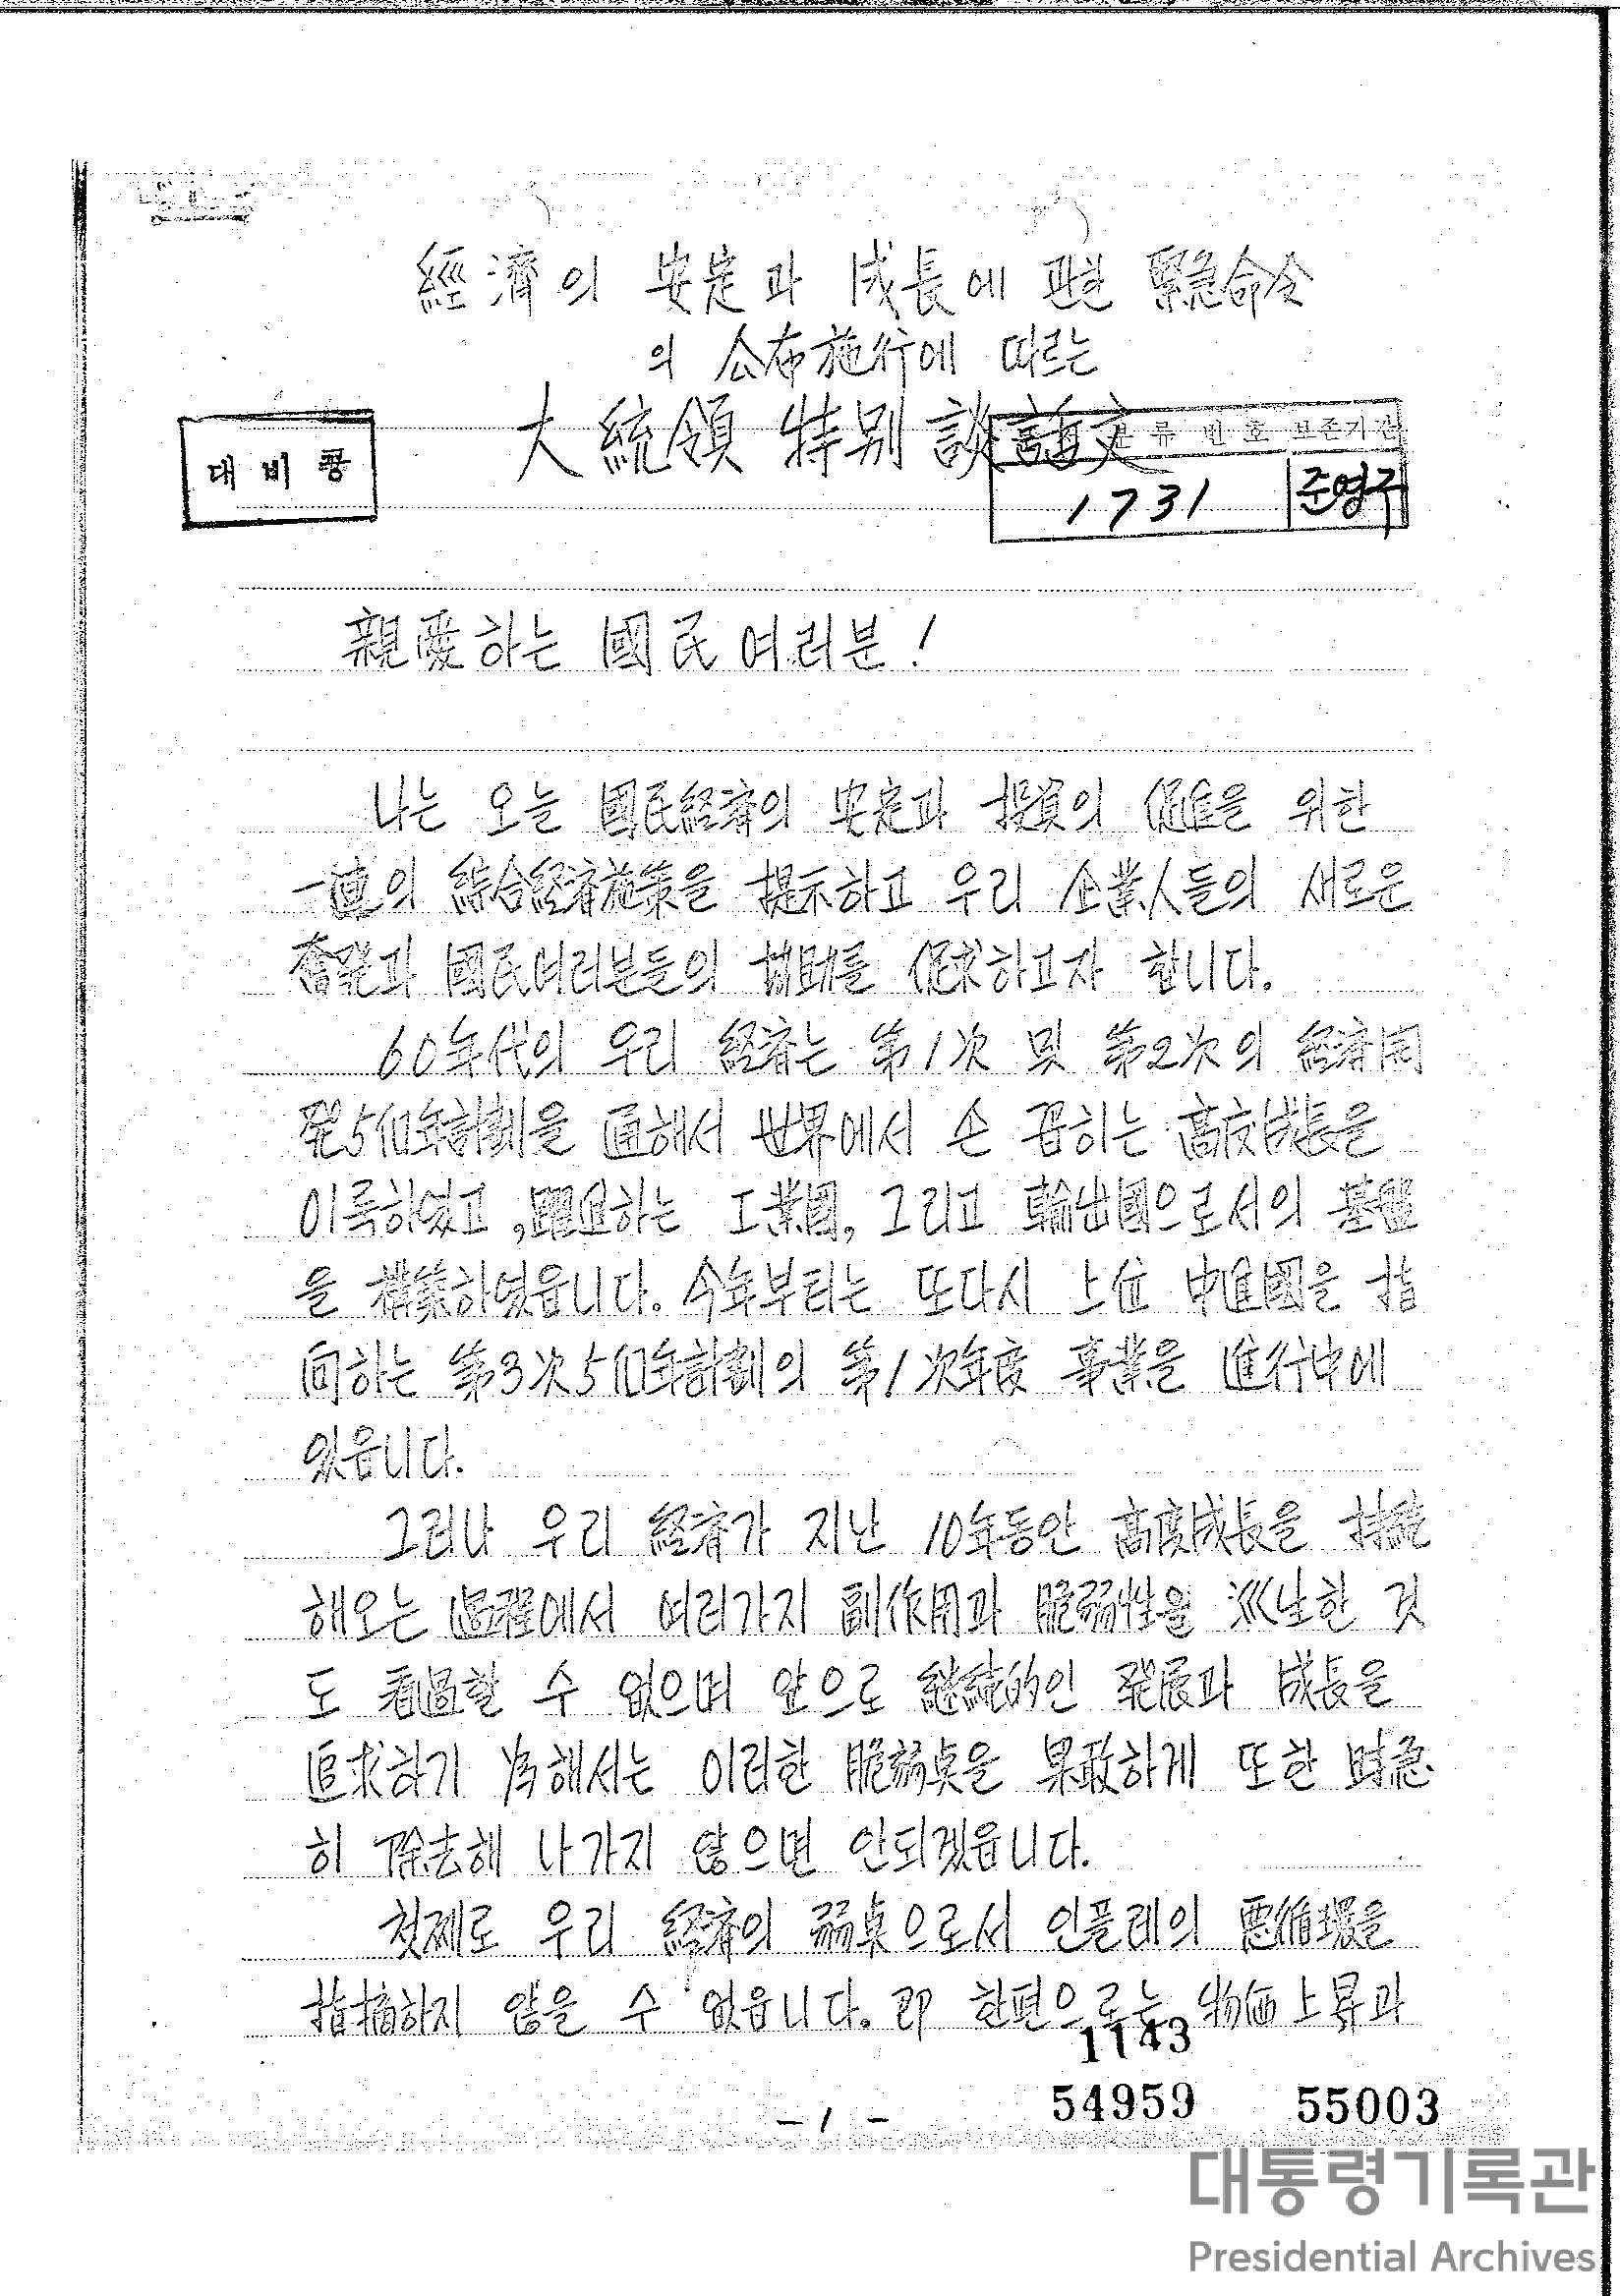 經濟의 安定과 成長에 관한 緊急命令
의 公布施行에 따르는
大統領 特別 談話文
대 비 공
분 류 번 호 보존기간
1731 준영구
親愛하는 國民여러분!
나는 오늘 國民経済의 安定과 投資의 促進을 위한
一連의 綜合経済施策을 提示하고 우리 企業人들의 새로운
奮発과 國民여러분들의 協助를 促求하고자 합니다.
60年代의 우리 経済는 第1次 및 第2次의 経済開
発5個年計劃을 通해서 世界에서 손 꼽히는 高度成長을
이룩하였고, 躍進하는 工業國, 그리고 輸出國으로서의 基盤
을 構築하였읍니다. 今年부터는 또다시 上位 中進國을 指
向하는 第3次5個年計劃의 第1次年度 事業을 進行中에
있읍니다.
그러나 우리 経済가 지난 10年동안 高度成長을 持続
해오는 過程에서 여러가지 副作用과 脆弱性을 派生한 것
도 看過할 수 없으며 앞으로 継続的인 発展과 成長을
追求하기 為해서는 이러한 脆弱点을 果敢하게 또한 時急
히 除去해 나가지 않으면 안되겠읍니다.
첫째로 우리 経済의 弱点으로서 인플레의 悪循環을
指摘하지 않을 수 없읍니다. 即 한편으로는 物価上昇과
1143
54959 55003
- 1 -
대통령기록관
Presidential Archives